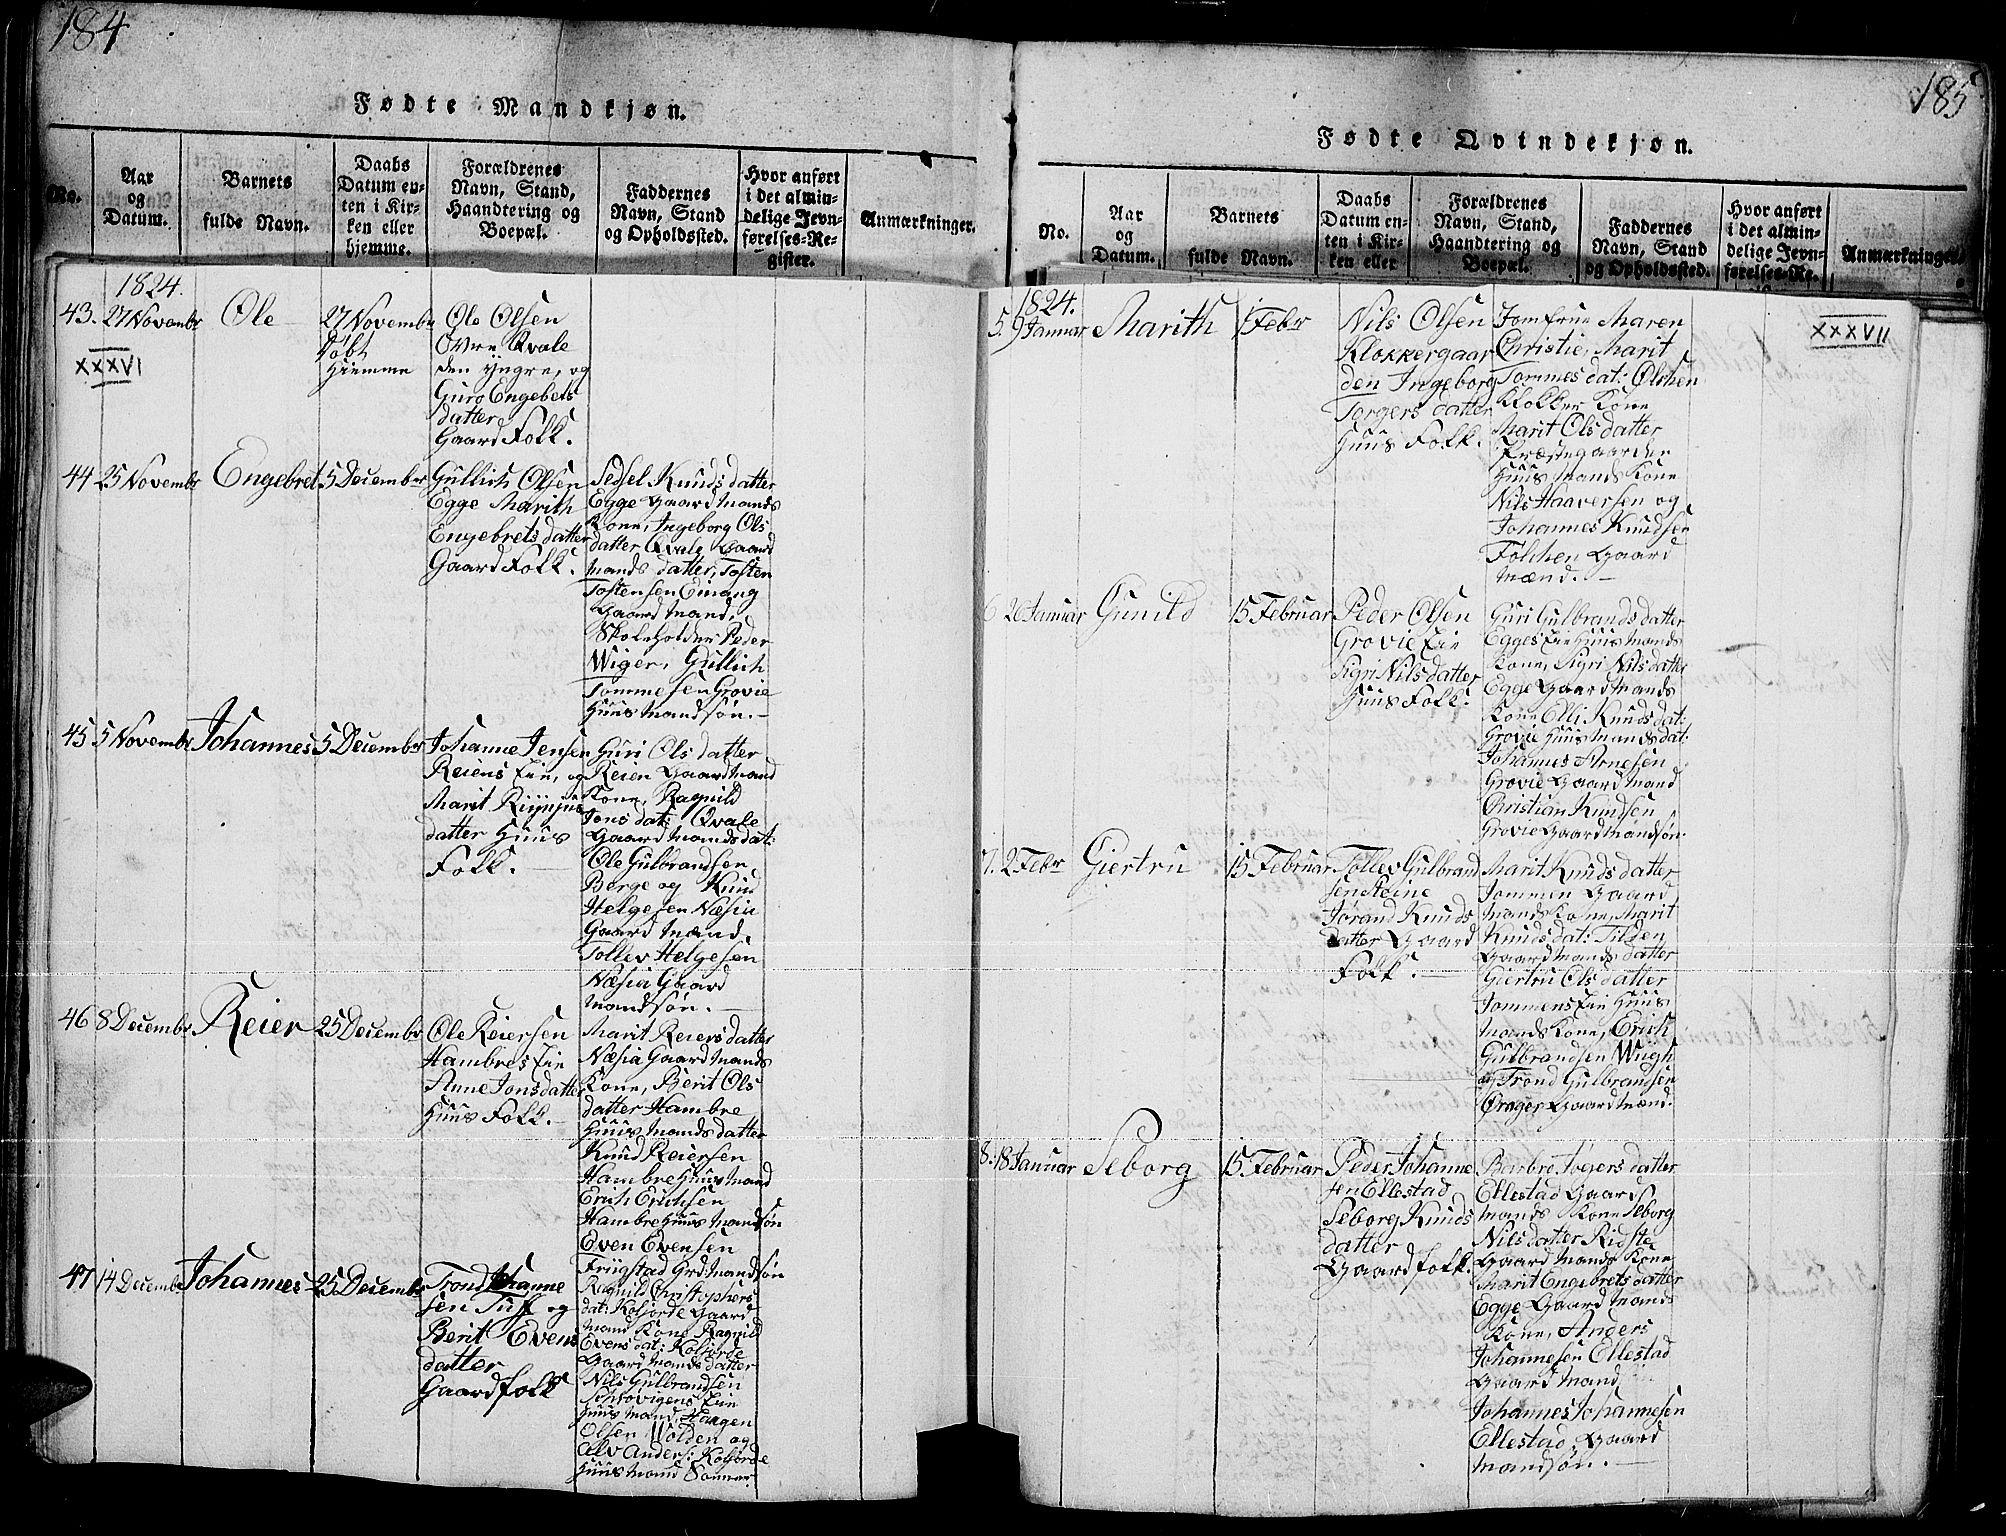 184
Fødte Mandkjøn.
No.
Aar
og
Datum.
Barnets
fulde Navn.
Daabs
Datum en-
ten i Kir-
ken eller
hjemme.
Forældrenes
Navn, Stand,
Haandtering og
Boepæl.
Faddernes
Navn, Stand
og Opholdssted.
Hvor anført
i det almin-
delige Jevn-
førelses-Re-
gister.
Anmærkninger.
1824.
43. 27 Novembr
XXXVI
Ole
27 Novembr
Døbt
Hiemme
Ole Olsen
Øvre Qvale
den yngre, og
Guro Engebets
datter
Gaard Folk.
44 25 Novembr
Engebret
5 Decembr
Gullich Olsen
Egge Marith
Engebrets datter
Gaard Folk.
Sedsel Knuds datter
Egge Gaard Mands
Kone, Ingeborg Ols
datter Qvale Gaard
Mands datter, Tosten
Tostensen Einang
Gaard Mand,
Skoleholder Peder
Wiger, Gullich
Tommesen Grovie
Huus Mand søn.
45 5 Novembr
Johannes
5 Decembr
Johanne Jensen
Reiens Eie, og
Marit
datter Huus
Folk.
Guri Ols datter
Reien Gaard Mand
Kone, Ragnild
Jons dat: Qvale
Gaard Mands dat:
Ole Gulbrandsen
Berge og Knud
Helgesen Næsia
Gaard Mænd,
Tollev Helgesen
Næsia Gaard
Mand søn.
46 8 Decembr
Reier
25 Decembr
Ole Reiersen
Hambres Eie
Anne Jonsdatter
Huus Folk.
Marit Reiers datter
Næsia Gaard Mands
Kone, Berit Ols
datter Hambre
Huus Mands datter
Knud Reiersen
Hambre Huus Mand
Erich Erichsen
Hambre Huus Mand søn
Even Evensen
Friigstad Grd: Mand søn
47 14 Decembr
Johannes
25 Decembr
Trond Johanne
sen Tuff og
Berit Evens
datter
Gaard folk
Ragnild Christophers
dat: Kolsjorde Gaard
Mand Kone Ragnild
Evens dat: Kolsjorde
Gaard Mands datter
Nils Gulbrandsen
Schrøvigens Eie
Huus Mand, Haagen
Olsen Wolden og
Alv Anders: Kolsjorde
Huus Mand
185
Fødte Qvindekjøn.
No.
Aar
og
Datum.
Barnets
fulde Navn.
Daabs
Datum en-
ten i Kir-
ken eller
Forældrenes
Navn, Stand,
Haandtering og
Boepæl.
Faddernes
Navn, Stand
og Opholdssted.
Hvor anført
i det almin-
delige Jevn-
førelses-Re-
Anmærkninger.
1824.
5. 9 Januar
Marith
1 Febr
Nils Olsen
Klokkergaar
den Ingeborg
Torgers datter
Huus Folk.
Jomfrue Maren
Christie, Marit
Tommes dat: Ølshen
Klokker Kone
Marit Ols datter
Præstegaarden
Huus Mands Kone
Nils Haaversen og
Johannes Knudsen
Følchen Gaard
Mænd.
XXXVII
6 26 Januar
Gunild
15 Februar
Peder Olsen
Grovie Eie
Sigri Nils datter
Huus Folk.
Guri Gulbrands datter
Egges Eie Huus Mands
Kone, Sigri Nils datter
Egge Gaard Mands
Kone Elli Knuds dat:
Grovie Huus Mands dat:
Johannes Arnesen
Grovie Gaard Mand
Christian Knudsen
Grovie Gaard Mand søn.
7. 2 Febr
Giertru
15 Februar
Tollev Gulbrand
sen Steine
Jørand Knuds
datter Gaard
Folk.
Marit Knuds datter
Jommen Gaard
Mands Kone, Marit
Knuds dat: Tilden
Gaard Mands datter
Giertru Ols datter
Jommens Eie Huus
Mands Kone, Erick
Gulbrandsen Wiigh
og Trond Gulbrandsen
Qrager Gaard Mænd.
8. 18 Januar
Seborg
15 Februar
Peder Johanne
sen Ellestad
Seborg Knuds
datter
Gaard folk.
Barbro Iversdatter
Ellestad Gaard
Mands Kone Seborg
Nils datter Ridste
Gaard Mands Kone
Marit Engebrets datter
Egge Gaard Mands
Kone, Anders
Johannesen Ellestad
Gaard Mand,
Johannes Johannesen
Ellestad Gaard
Mand søn.